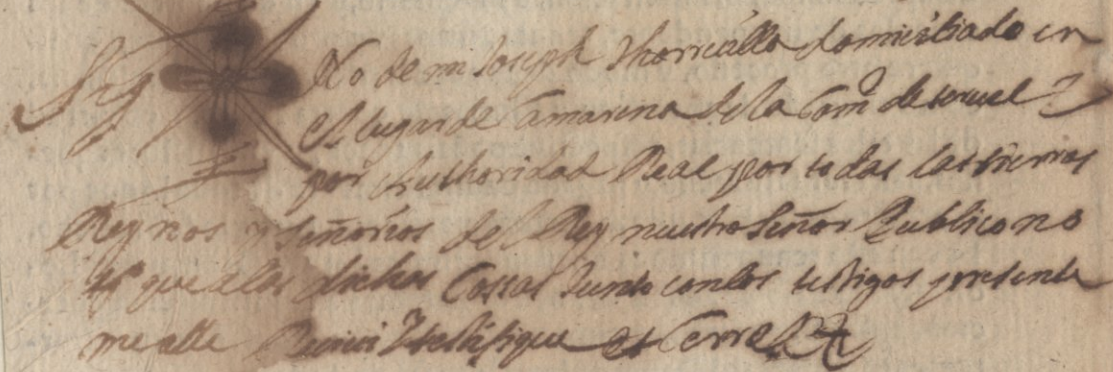 Sig no de mi Joseph Thorrealla domisiliado en
el lugar de Camarena de la Com.d de teruel y
por Authoridad Real por todas las tierras
Reynos y señorios del Rey nuestro señor Publico no
tt.o que a las dichas Cossas Junto con los testigos presente
me alle Reciui Y testifique et Cerre